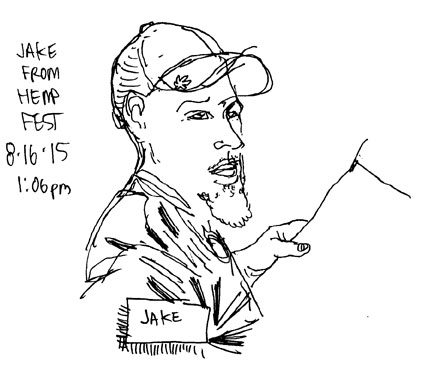 JAKE
FROM
HEMP
FEST
8·16·15
1:06pm
JAKE